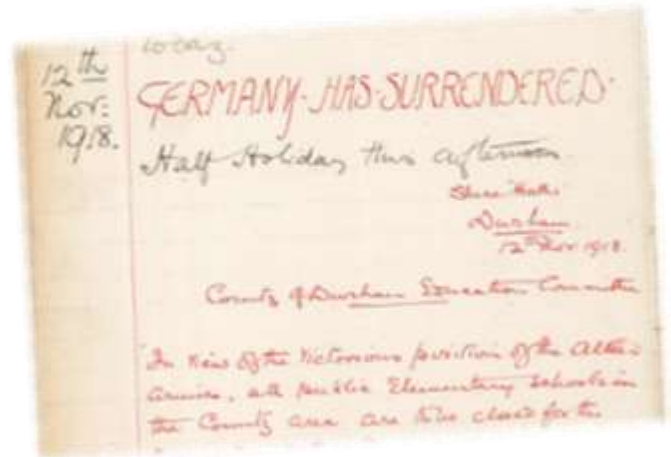 today.
12th
Nov:
1918.
GERMANY·HAS·SURRENDERED·
Half Holiday this afternoon.
Shire Hall
Durham
12th Nov 1918.
County of Durham Education Committee
In view of the Victorious position of the Allied
Armies, all Public Elementary Schools in
the County area are to be closed for the